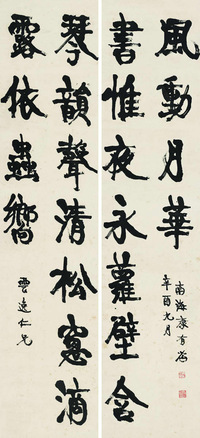 琴韻聲清松窻滴
露依蟲嚮
雲逵仁兄
書惟夜永蘿壁含
風動月華
辛酉九月
南海康有為